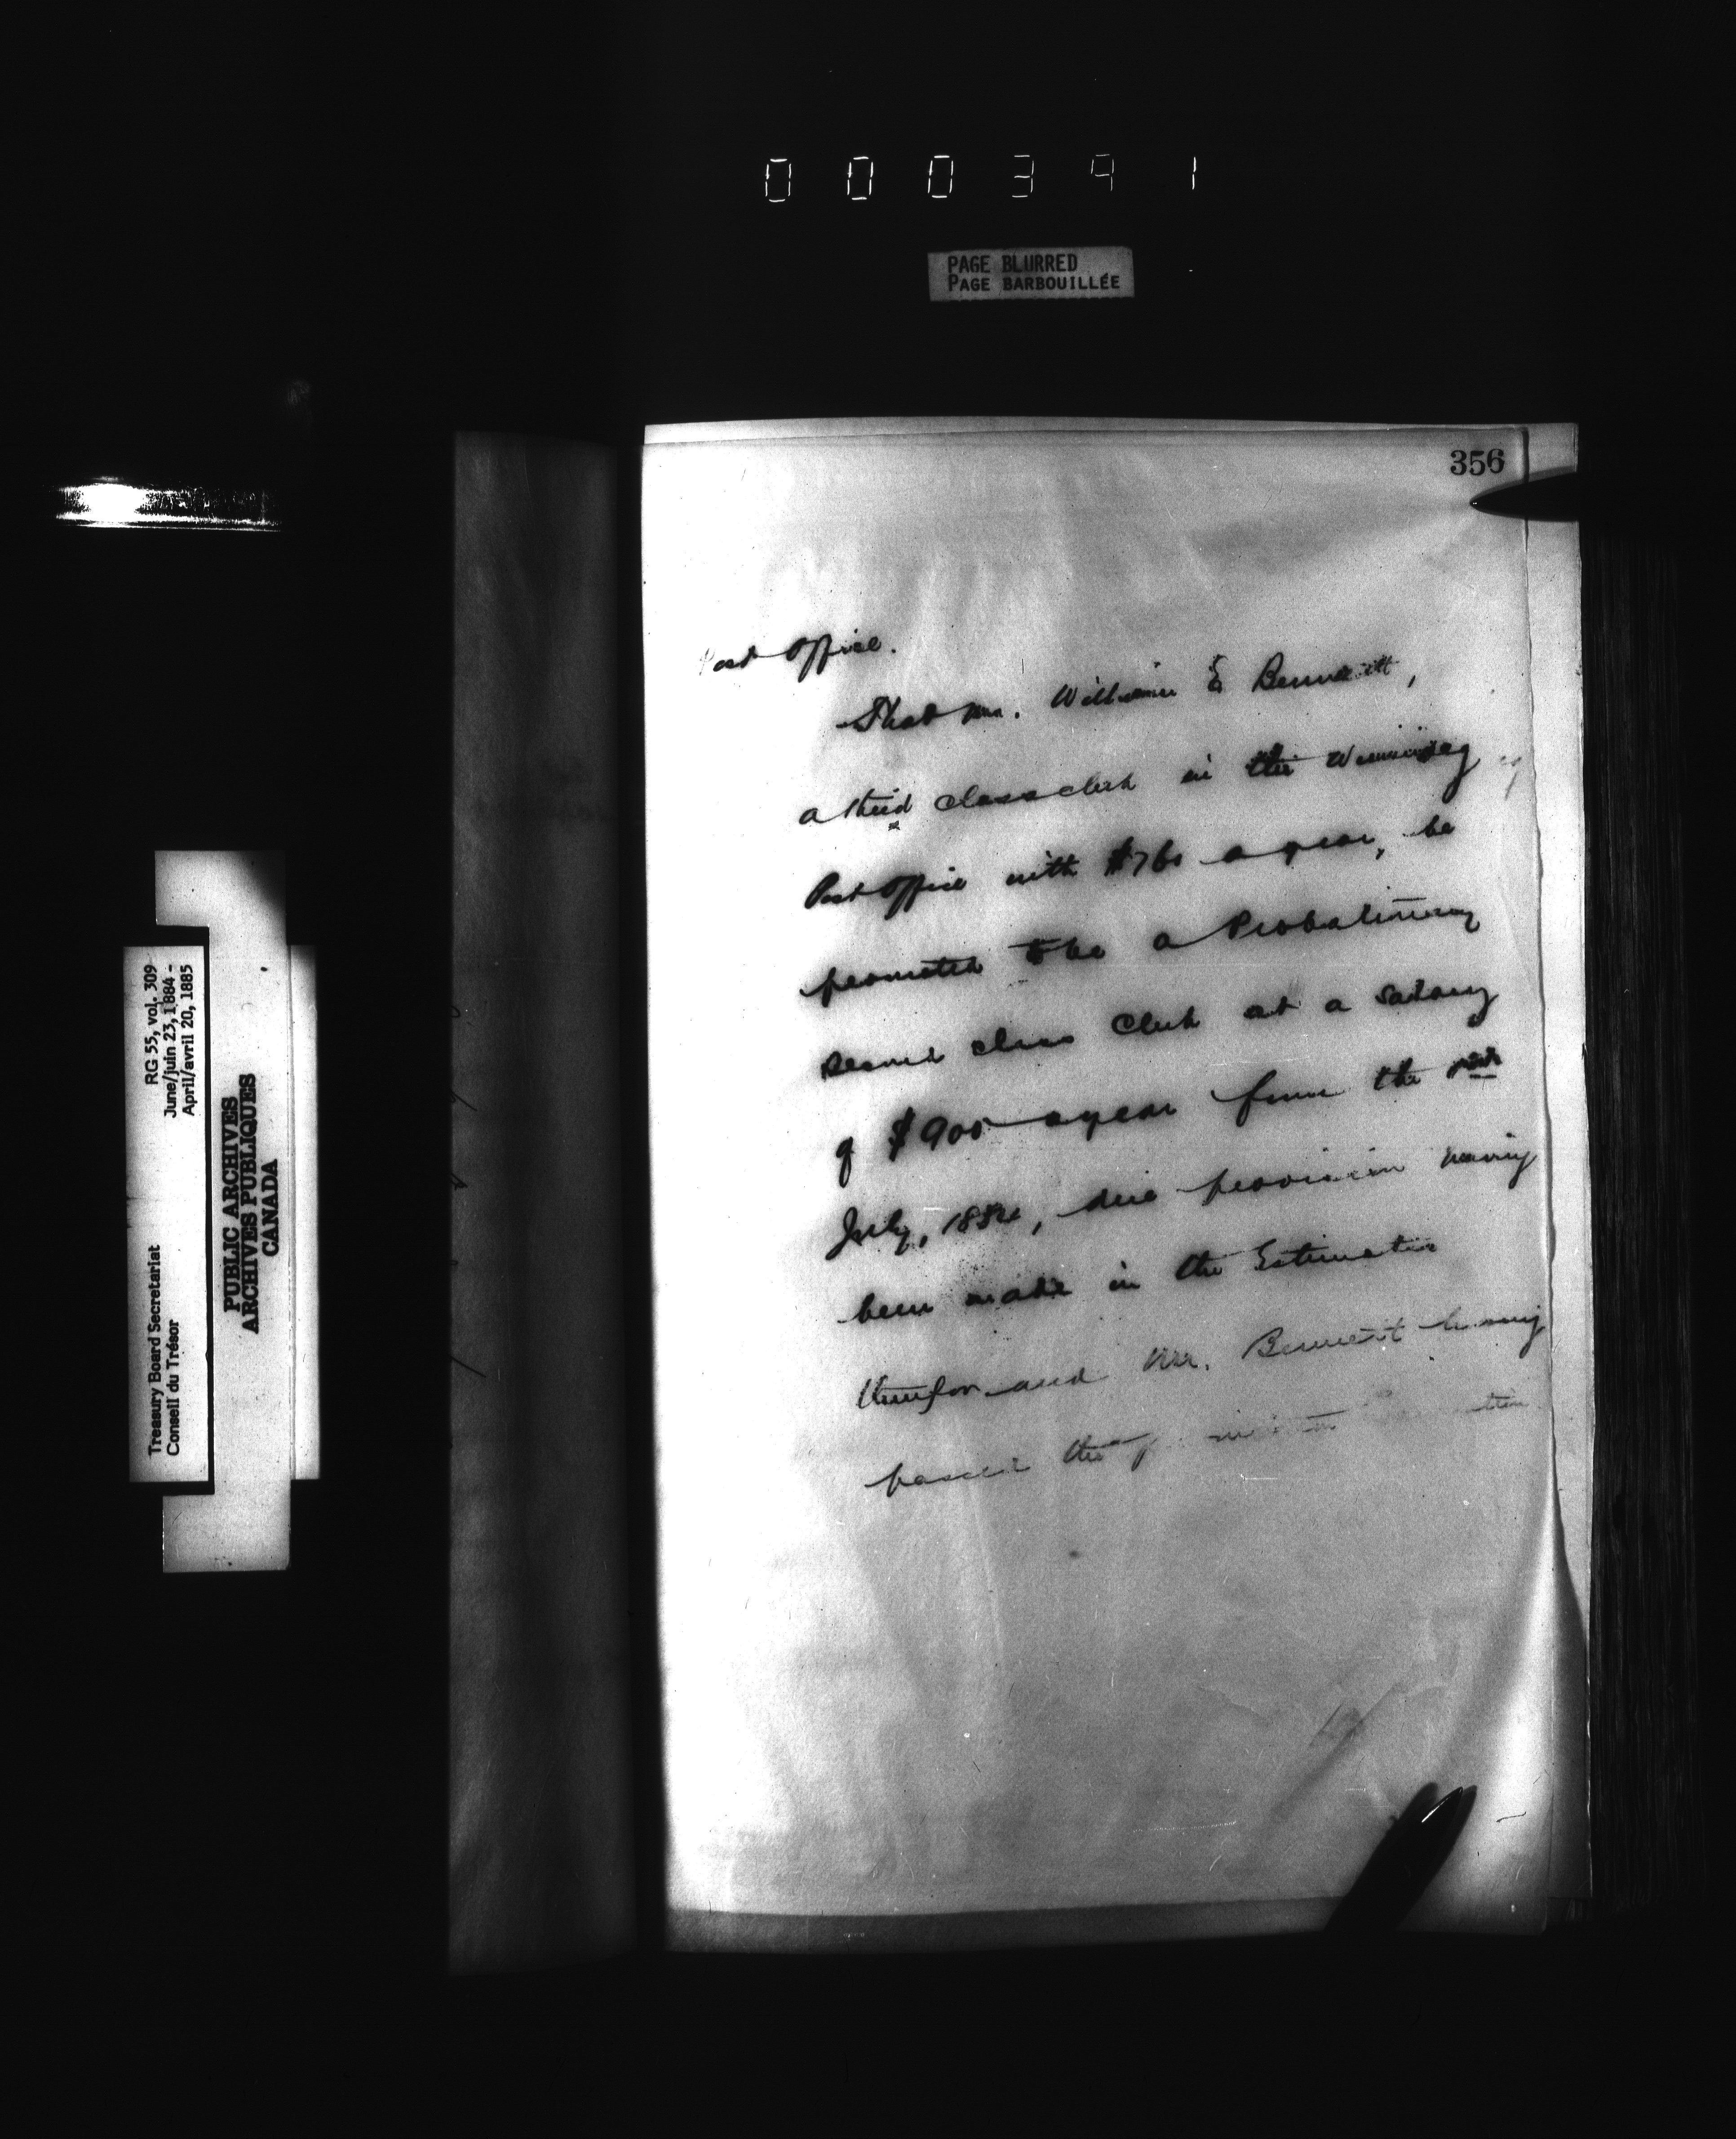 000391
PAGE BLURRED
PAGE BARBOUILLÉE
356
Post Office.
That Mr. William E Bennett,
a third class clerk in the Winnipeg
Post Office with $760 a year, be
promoted to be a Probationary
second class Clerk at a salary
of $900 a year from the 1st
July, 1884, due provision having
been made in the Estimates
therefor and Mr. Bennett having
passed the
RG 55, vol. 309
June/juin 23, 1884 -
April/avril 20, 1885
Treasury Board Secretariat
Conseil du Trésor
PUBLIC ARCHIVES
ARCHIVES PUBLIQUES
CANADA